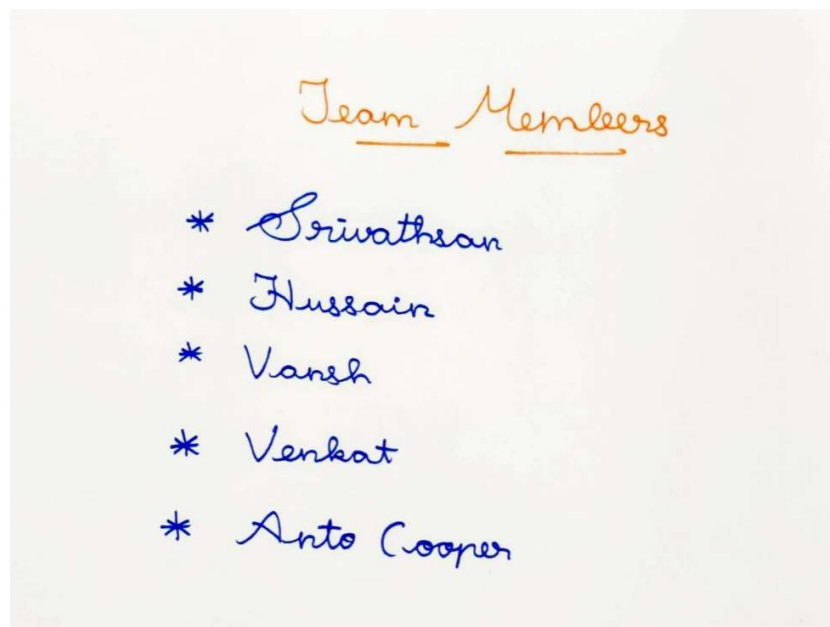 Team Members
* Srivathsan
* Hussain
* Vansh
* Venkat
* Anto Cooper